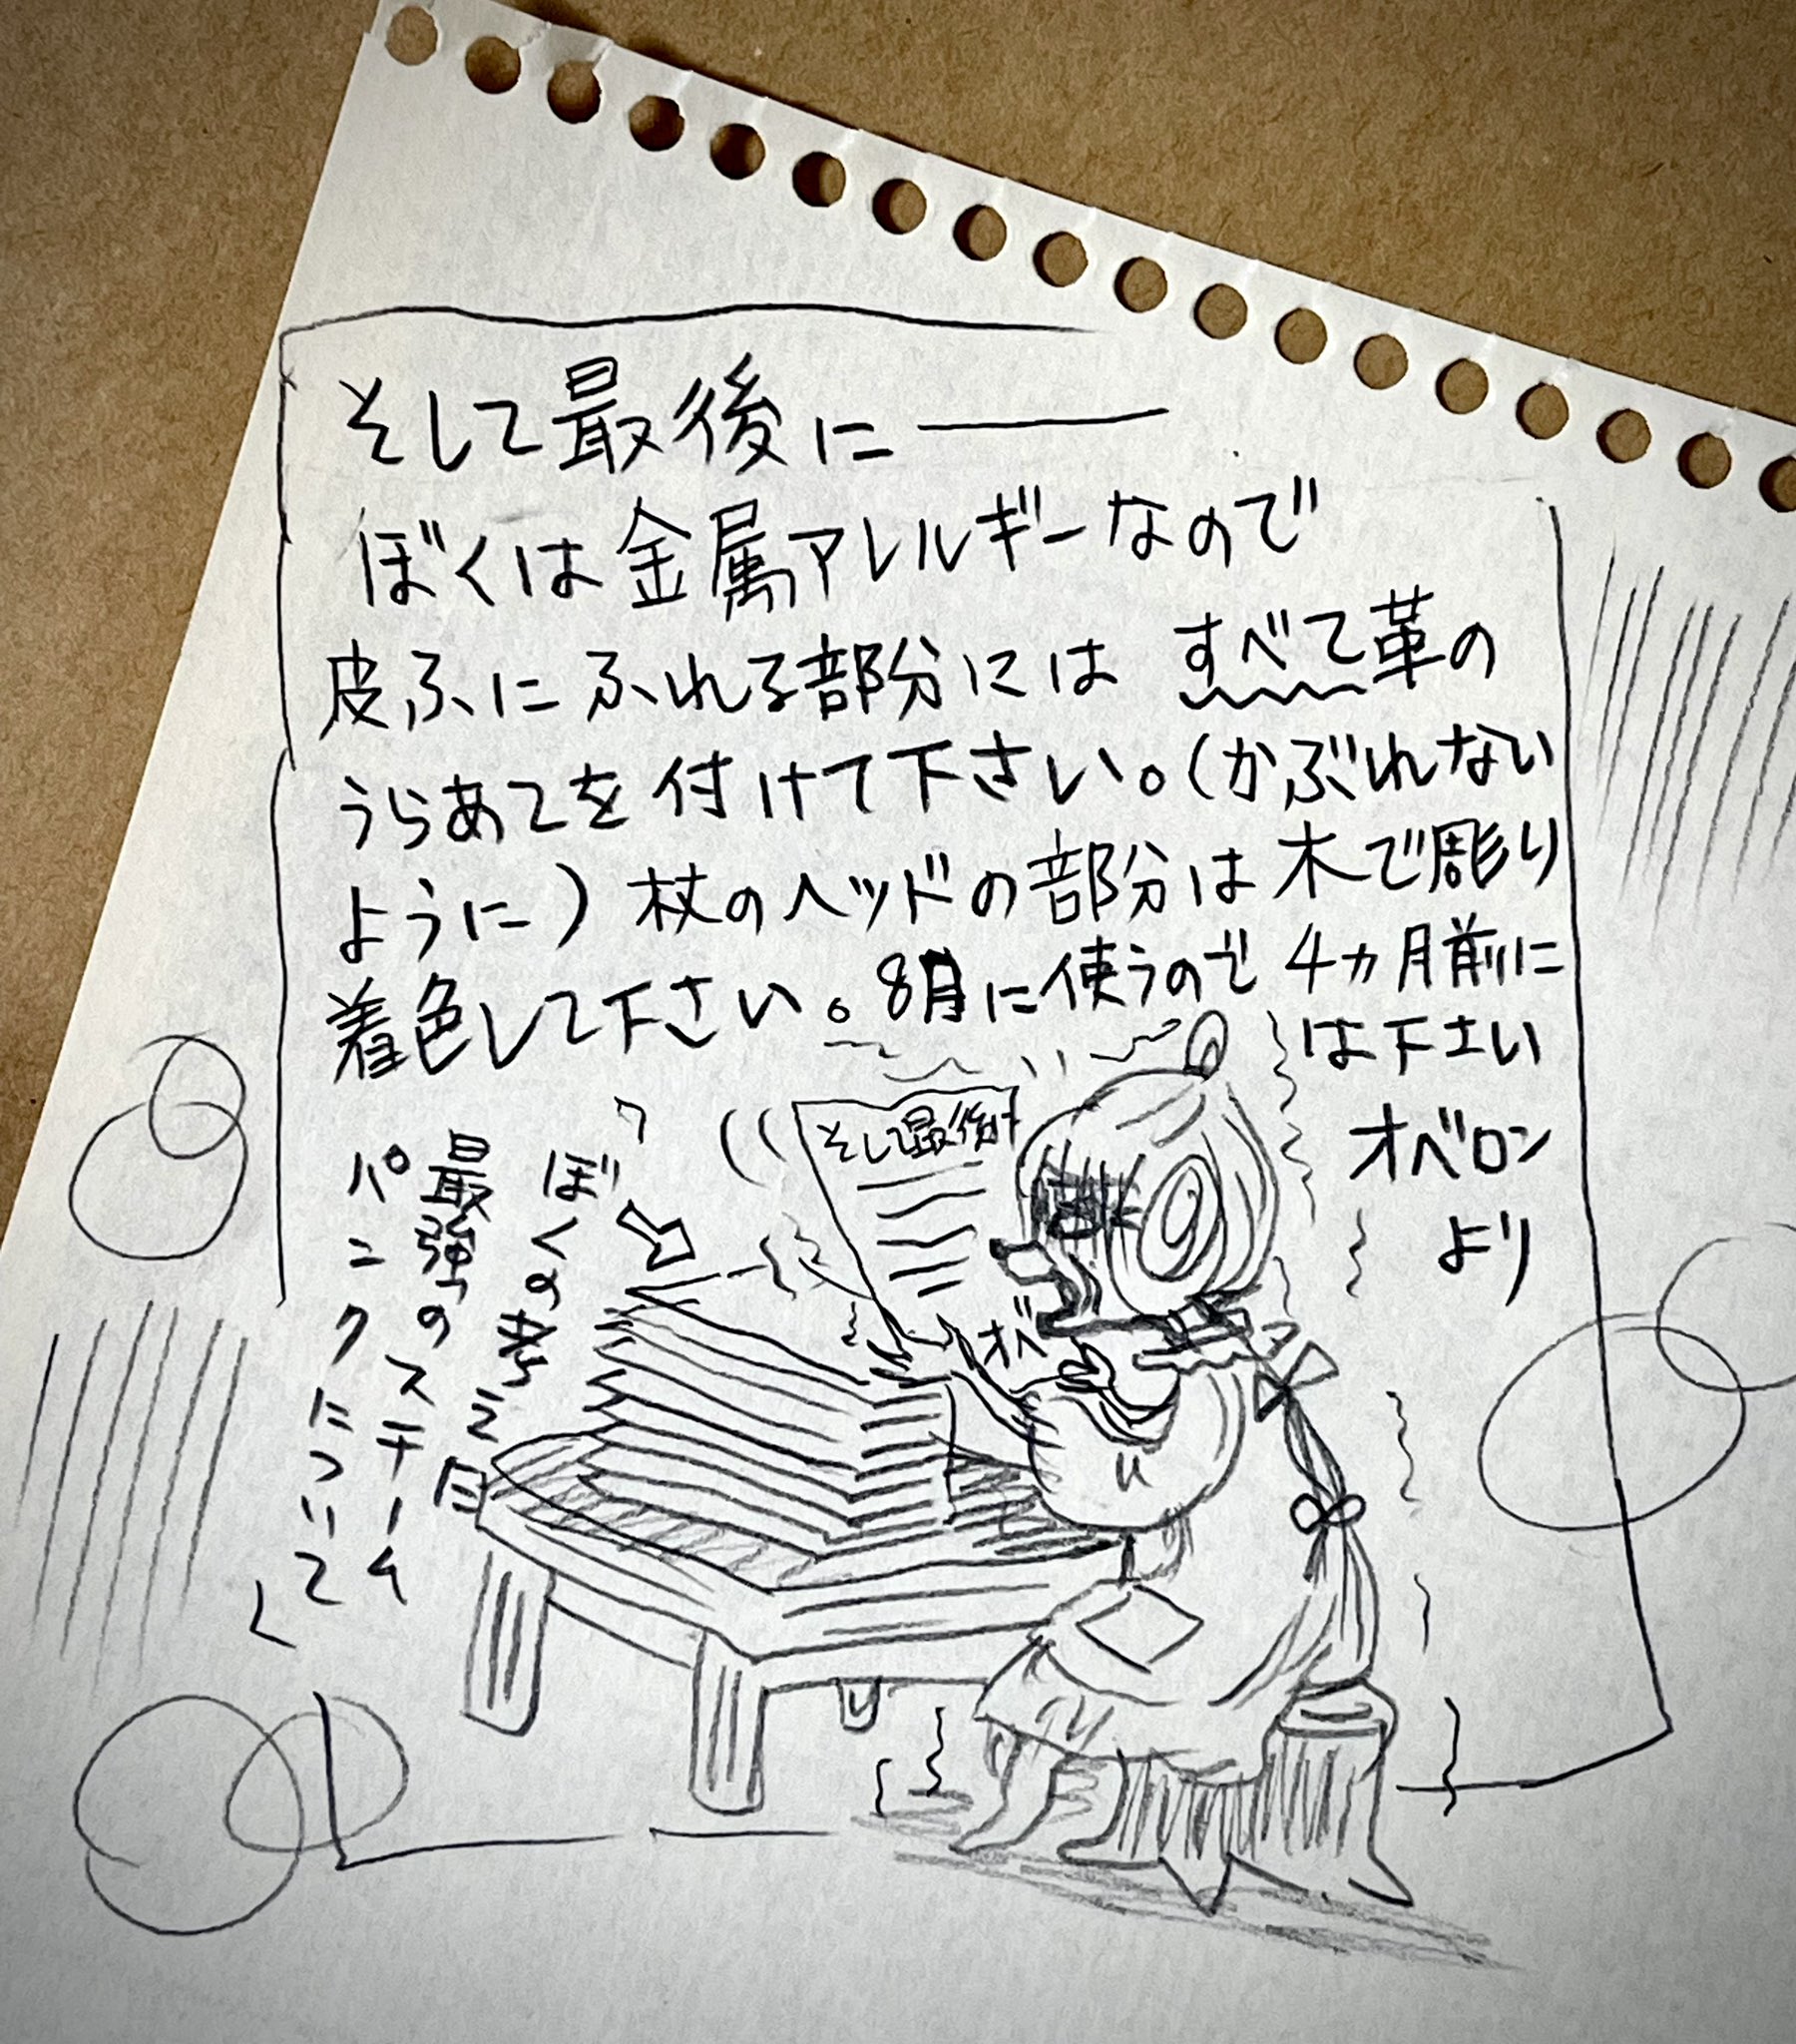 そして最後に――
ぼくは金属アレルギーなので
皮ふにふれる部分にはすべて革の
うらあてを付けて下さい。(かぶれない
ように)杖のヘッドの部分は木で彫り
着色して下さい。8月に使うので4カ月前に
は下さい
オベロン
より
そして最後に
オベ
「ぼくの考える
最強のスチーム
パンクについて」